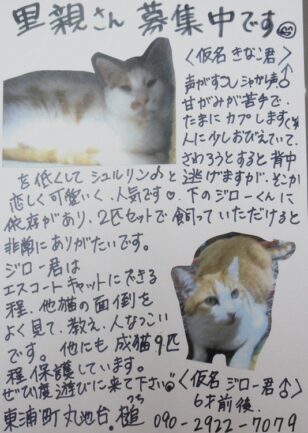 里親さん募集中です
〈仮名 きなこ君〉♂
声がすこしシャガれ声
甘がみが苦手で、
たまにカプします。
人に少しおびえていて、
さわろうとすると背中
を低くしてシュルリン♪と逃げますが、そこが
悲しく可愛いく、人気です♡。下のジローくんに
依存があり、2匹セットで飼っていただけると
非常にありがたいです。
ジロー君は
エスコートキャットにできる
程、他猫の面倒を
よく見て、教え、人なつこい
です。他にも成猫9匹
程保護しています。
ぜひ1度遊びに来て下さい
〈仮名 ジロー君♂〉
6才前後.
東浦町丸池台. 槌 つち 090-2922-7079